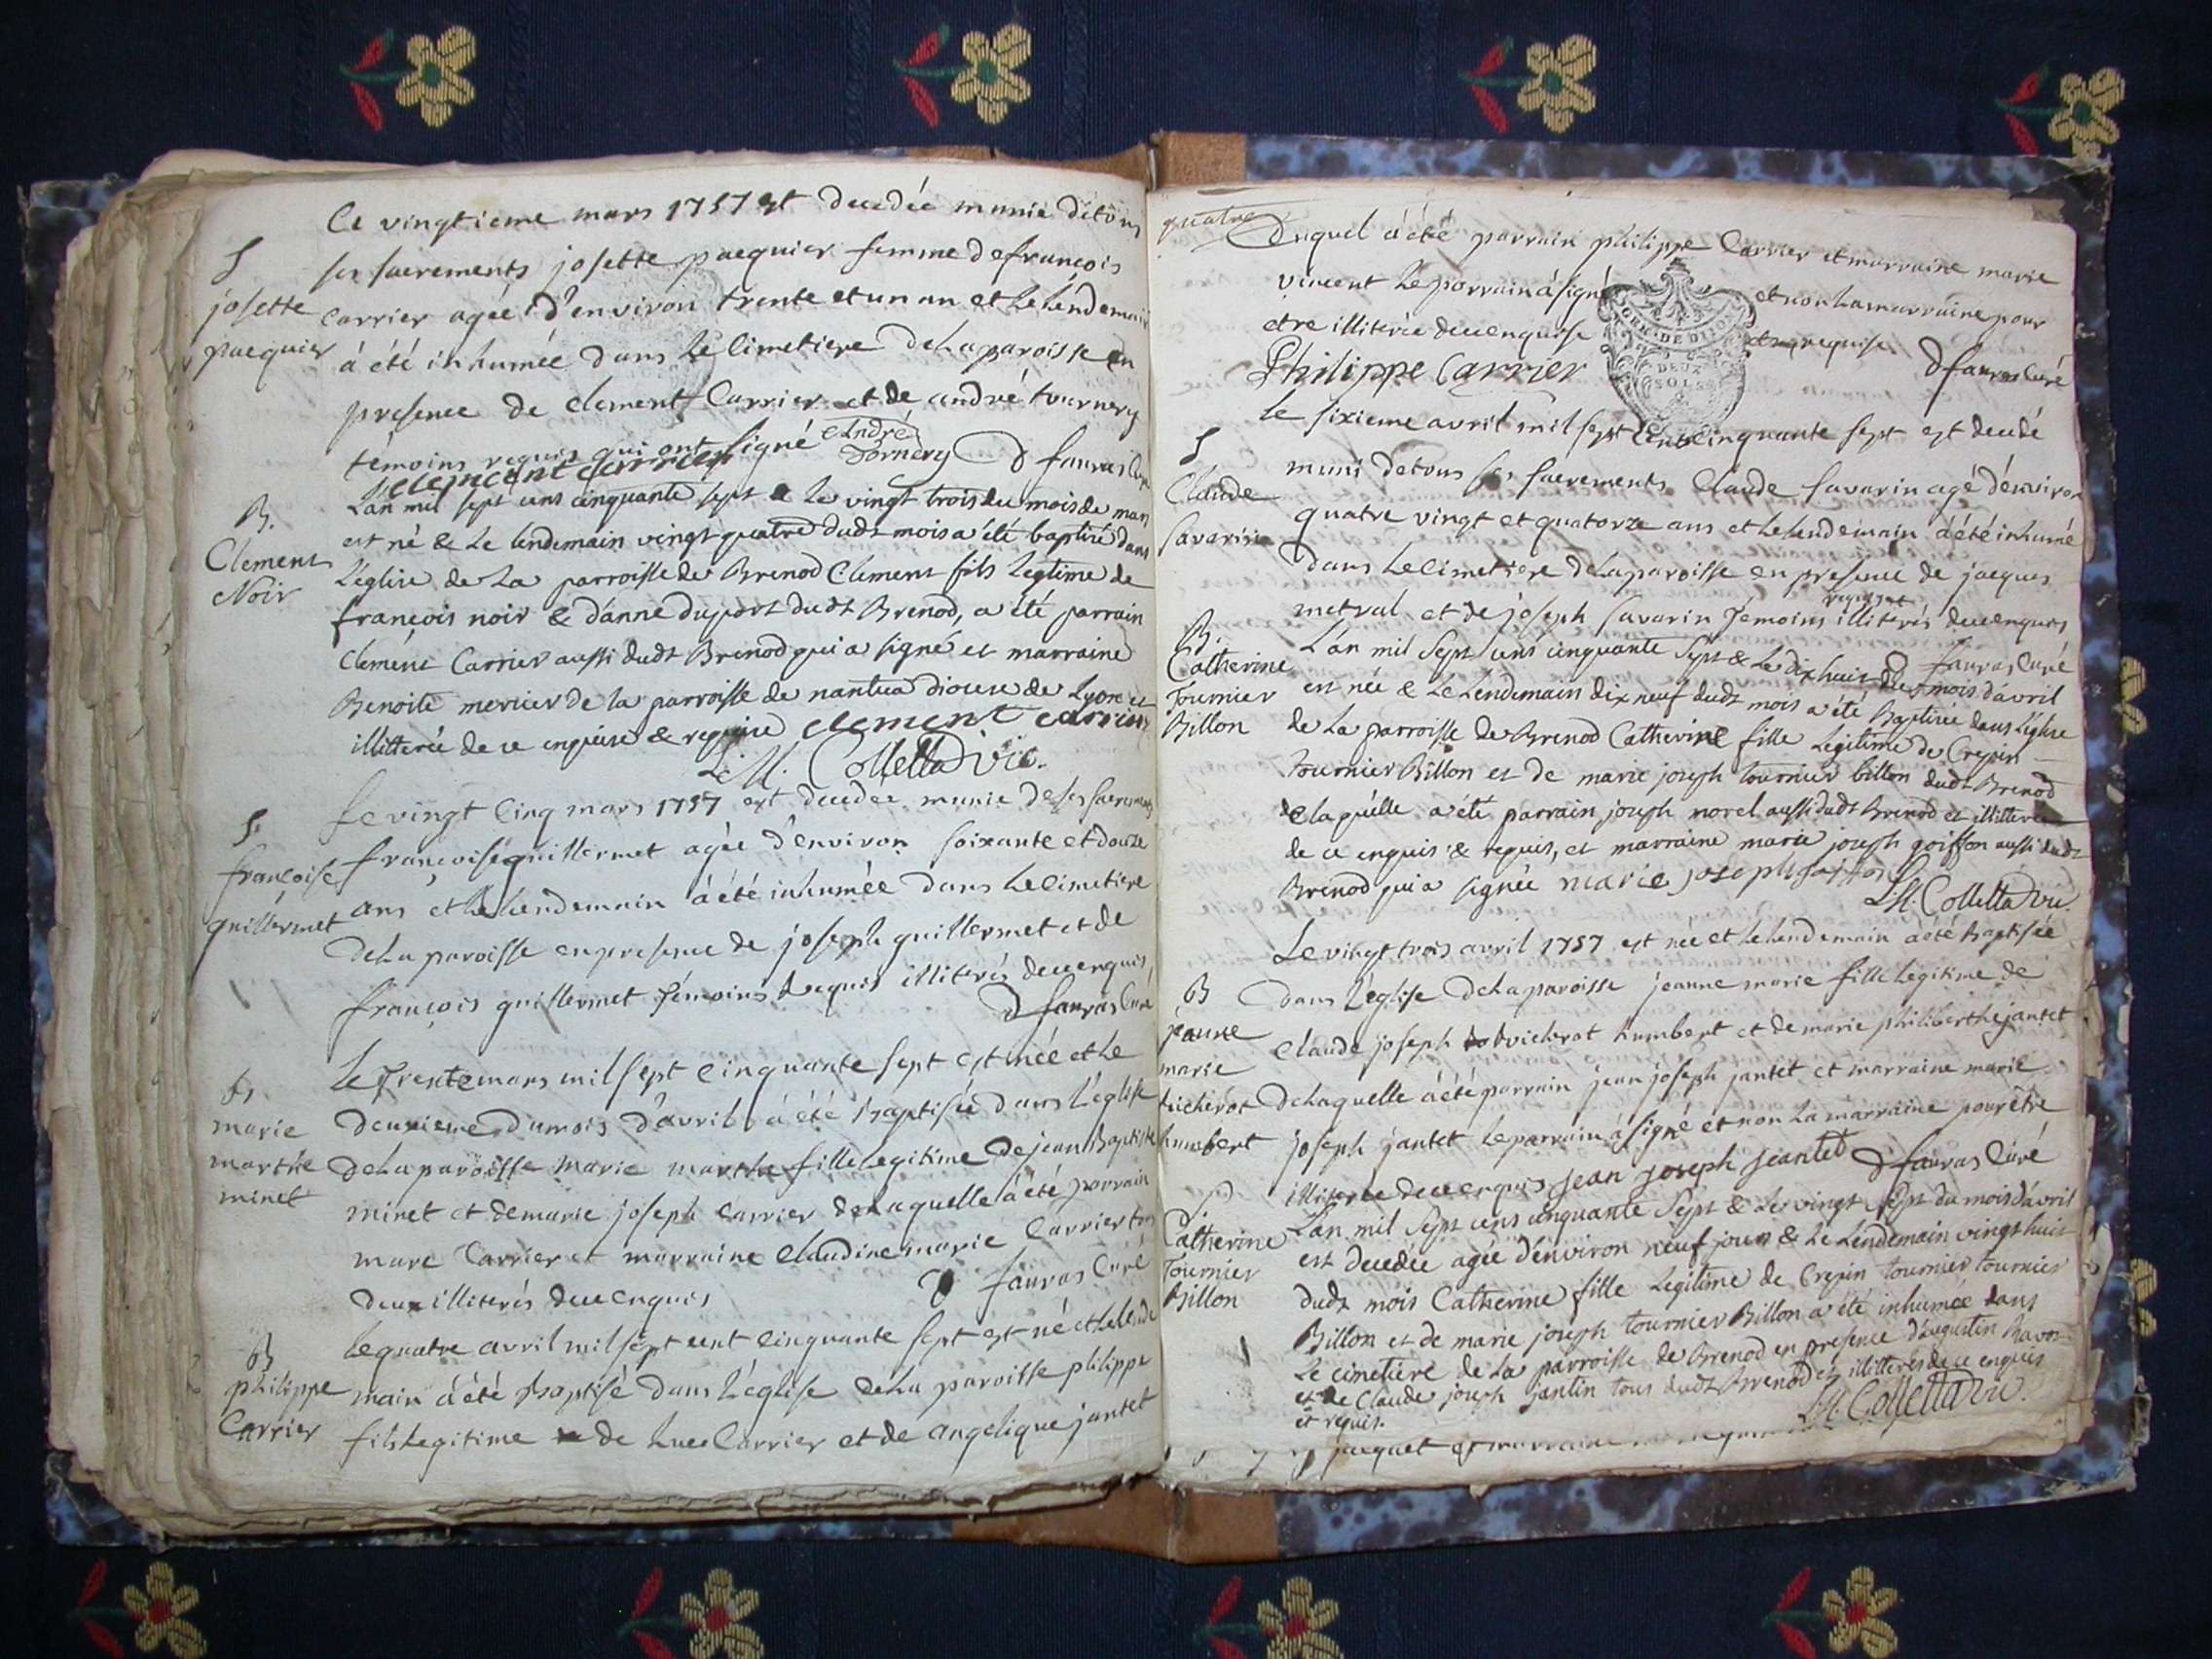 Ce vingtieme mars 1757 est decedée munie de tous
S
josette
pacquier
ses sacrements josette pacquier femme de francois
carrier agée d'environ trente et un an et le lendemain
à été inhumée dans le cimetiere de la paroisse en
presence de clement Carrier et de andré tournery
témoins requis qui ont signé andré
clement carrier tornery D favras Curé
B.
Clement
Noir
L'an mil sept cens cinquante sept & le vingt trois du mois de mars
est né & le lendemain vingt quatre dudt mois a été baptisé dans
l'église de la parroisse de Brenod Clement fils legitime de
françois noir & d'anne duport dudt Brenod, a été parrain
Clement Carrier aussi dudt Brenod qui a signé et marraine
Benoite mercier de la parroisse de nantua diocese de Lyon et
illitterée de ce enquise & requise clement carrier
L.M. Colletta Vic.
S
françoise
guillermet
Le vingt cinq mars 1757 est decedée munie de ses sacrements
françoise guillermet agée d'environ soixante et douze
ans et le lendemain à été inhumée dans le cimetiere
de la paroisse en presence de joseph guillermet et de
françois guillermet témoins requis illiterés de ce enquis
D favras Curé
B
marie
marthe
minet
Le trente mars mil sept cinquante sept est née et le
deuxieme du mois d'avril à été baptisée dans l'église
de la paroisse marie marthe fille legitime de jean Baptiste
minet et de marie joseph carrier de laquelle à été parrain
marc Carrier et marraine claudine marie Carrier tous
deux illiterés de ce enquis D favras Curé
B
philippe
Carrier
le quatre avril mil sept cent cinquante sept est né et le lende
main à été baptisé dans l'église de la paroisse philippe
fils legitime de Luc Carrier et de angelique jantet
quatre
Duquel à été parrain philippe Carrier et marraine marie
vincent le parrain à signé et non la marraine pour
etre illiterée de ce enquise et requise
GEN. DE DIJON
DEUX
SOLS
Philippe Carrier D favras Curé
S
Claude
Savarin
le sixieme avril mil sept cent cinquante sept est decedé
muni de tous ses sacrements Claude Savarin agé d'environ
quatre vingt et quatorze ans et le lendemain à été inhumé
dans le cimetiere de la paroisse en presence de jacques
metral et de joseph savarin témoins requis et illiterés de ce enquis
favras Curé
B.
Catherine
Tournier
Billon
L'an mil sept cens cinquante sept & le dix huit du mois d'avril
est née & le lendemain dix neuf dudt mois a été Baptisée dans l'église
de la parroisse de Brenod Catherine fille legitime de Crepin
Tournier Billon et de marie joseph tournier billon dudt Brenod
de laquelle a été parrain joseph morel aussi dudt Brenod et illitteré
de ce enquis & requis, et marraine marie joseph goiffon aussi dudt
Brenod qui a signée marie joseph goiffon
L.M. Colletta Vic.
B
jeanne
marie
tricherot
humbert
Le vingt trois avril 1757 est née et le lendemain à été Baptisée
dans l'église de la paroisse jeanne marie fille legitime de
claude joseph tricherot humbert et de marie philiberthe jantet
de laquelle à été parrain jean joseph jantet et marraine marie
joseph jantet le parrain à signé et non la marraine pour être
illiterée de ce enquis jean joseph jeantet D favras Curé
S.
Catherine
Tournier
Billon
L'an mil sept cens cinquante sept & le vingt sept du mois d'avril
est decedée agée d'environ neuf jours & le lendemain vingt huit
dudt mois Catherine fille legitime de Crepin tournier tournier
Billon et de marie joseph tournier Billon a été inhumée dans
le cimetiere de la parroisse de Brenod en presence d'augustin
et de Claude joseph jantin tous dudt Brenod et illitterés de ce enquis
et requis. L.M. Colletta Vic.
jacquet et marraine